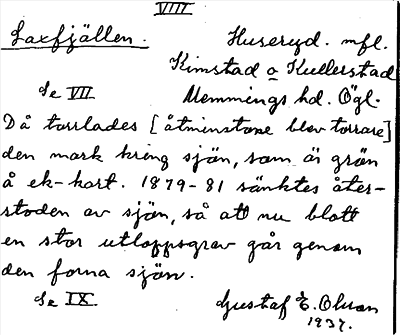 VIII
Saxfjällen. Huseryd. mfl.
Kimstad o Kullerstad
Se VII Memmings hd. Ögl.
Då torrlades [åtminstone blev torrare]
den mark kring sjön, som är grön
å ek-kart. 1879-81 sänktes åter-
stoden av sjön, så att nu blott
en stor utloppsgrav går genom
den forna sjön.
Se IX Gustaf E. Olsson
1937.